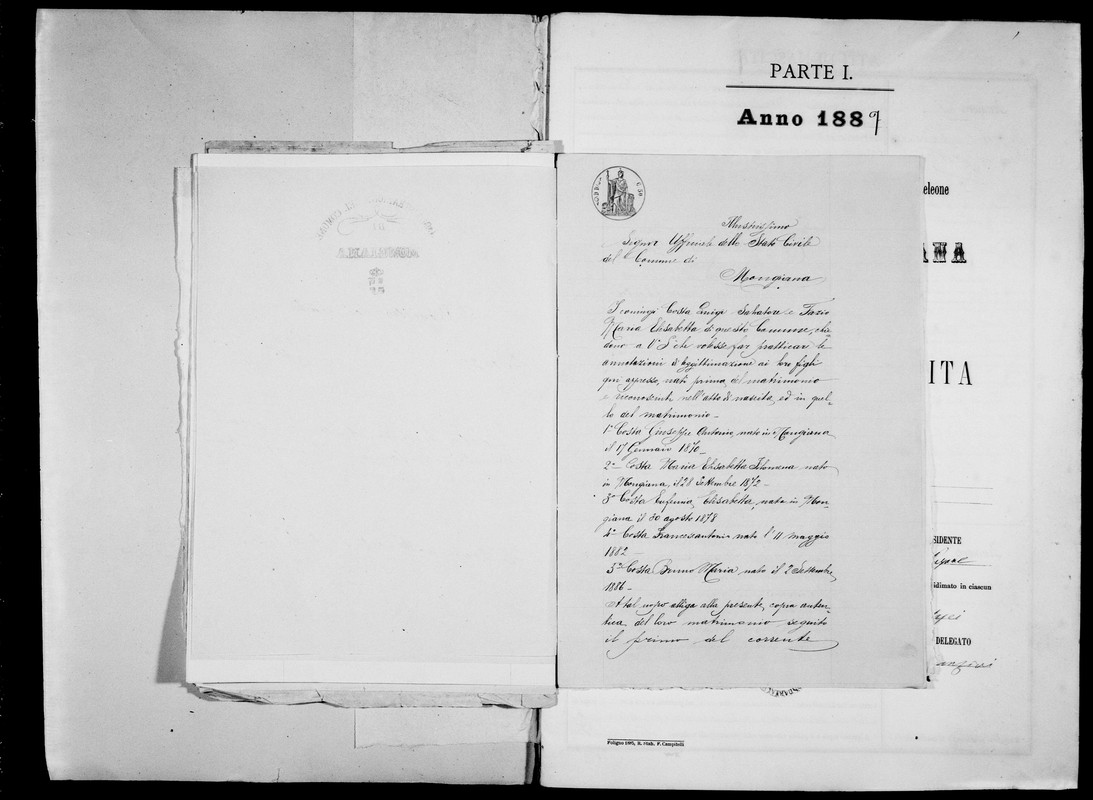 PARTE I.
Anno 1889
Illustrissimo
Signor Uffiziale dello Stato Civile
del Comune di
Mongiana
I coniugi Costa Luigi Salvatore e Fazio
Maria Elisabetta di questo Comune, chie
dono a V. S. che volesse far pratticare le
annotazioni di legittimazione ai loro figli
qui appresso, nati prima del matrimonio
e riconosciuti nell'atto di nascita, ed in quel-
lo del matrimonio -
1º Costa Giuseppe Antonio, nato in Mongiana
il 17 Gennaro 1870 -
2º Costa Maria Elisabetta Filomena nata
in Mongiana, il 28 Settembre 1872 -
3º Costa Eufemia, Elisabetta, nata in Mon-
giana il 30 agosto 1878
4º Costa Francescantonio nato l'11 maggio
1882 -
5º Costa Bruno Maria nato il 2 Settembre
1886 -
A tal uopo alliga alla presente, copia auten-
tica del loro matrimonio seguito
il primo del corrente
eleone
ANA
ITA
SIDENTE
idimato in ciascun
DELEGATO
Foligno 1885, R. Stab. F. Campitelli